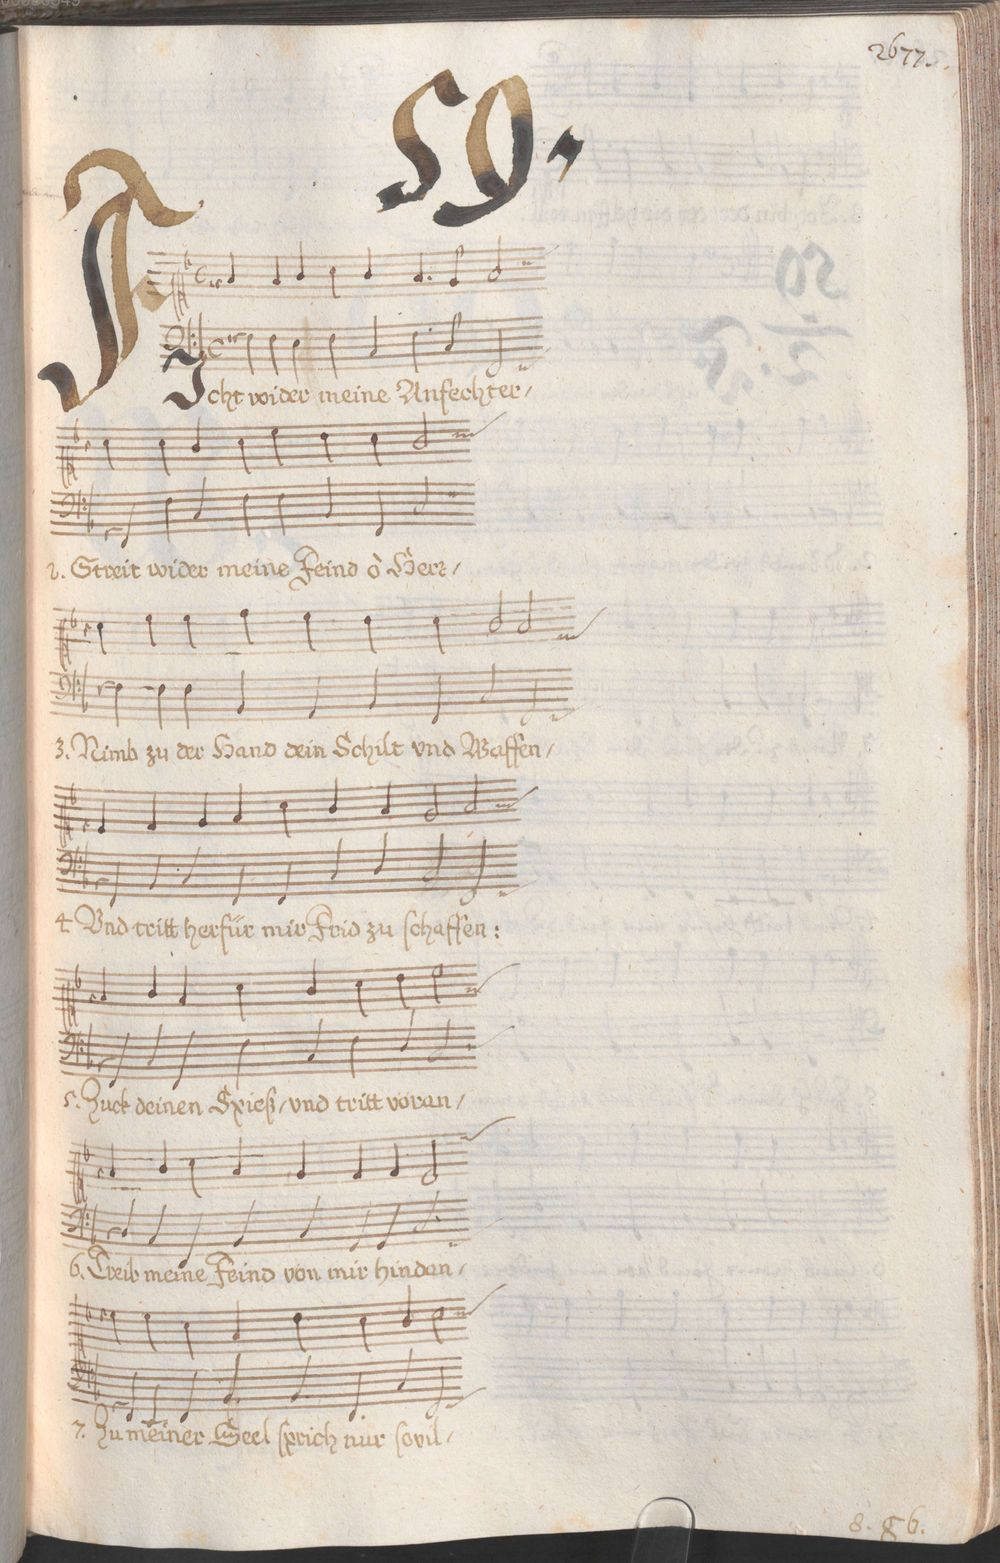 2677.
59.
F
Icht wider meine Anfechter/
2. Streit wider meine Feind ô Herr/
3. Nimb zu der Hand dein Schilt vnd Waffen/
4 Vnd tritt herfür mir Frid zu schaffen:
5. Zuck deinen Spieß/ vnd tritt voran/
6. Treib meine Feind von mir hindan/
7. Zu meiner Seel sprich nur sovil/
8. G6.